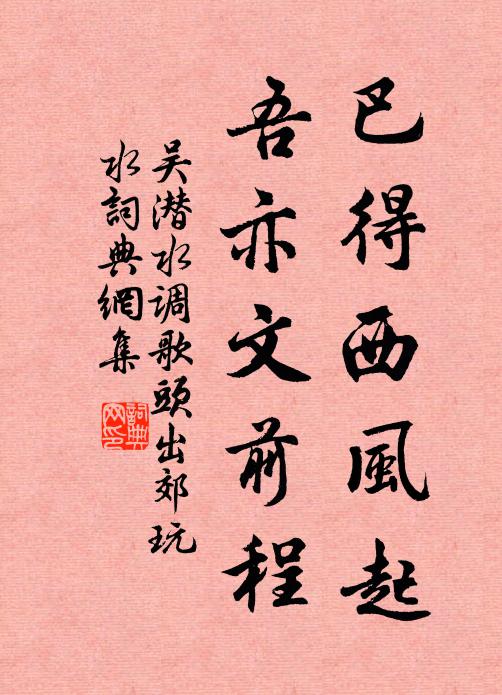 已得西風起
吾亦文前程
吴潜水調歌頭出郊玩
水詞典網集
詞典网印